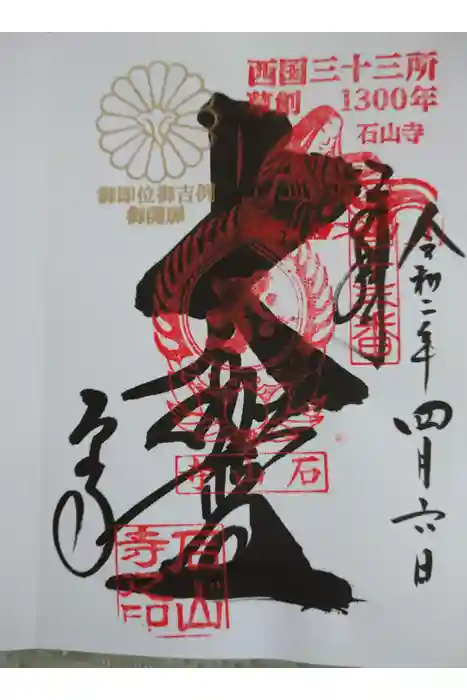 西国三十三所
草創 1300年
石山寺
御即位御吉例
御開扉
奉拝
令和二年四月六日
大悲殿
石山寺
石山寺
石山寺之印